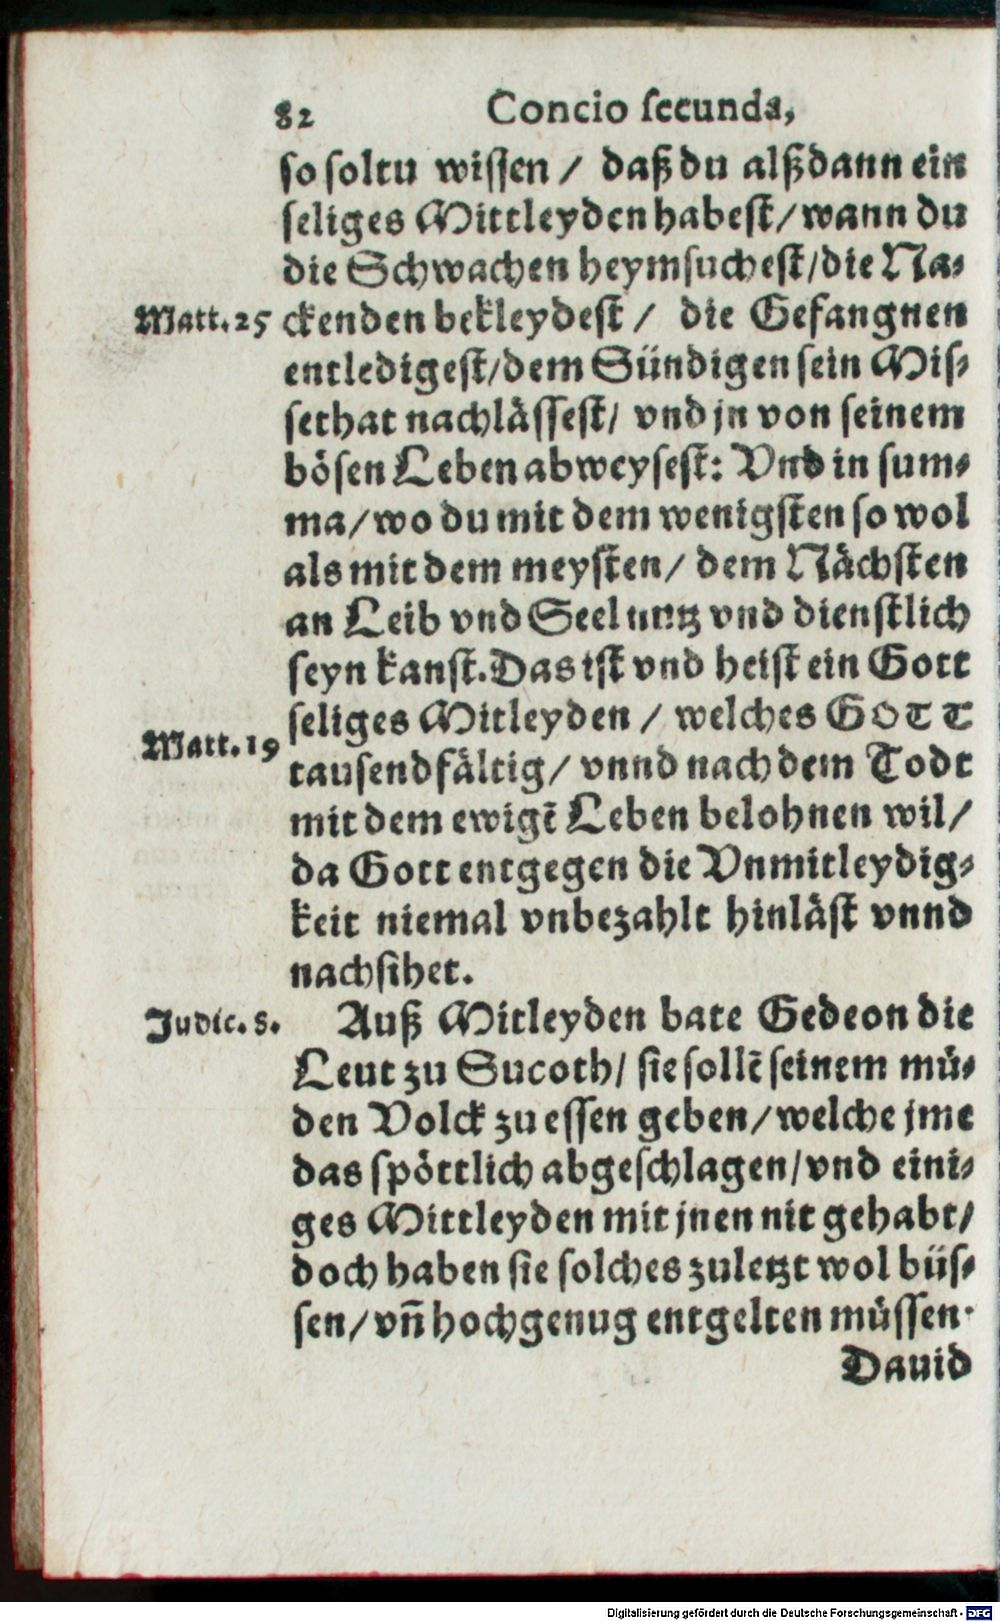 82 Concio secunda,
so soltu wissen / daß du alßdann ein
seliges Mittleyden habest / wann du
die Schwachen heymsuchest / die Na-
Matt. 25 ckenden bekleydest / die Gefangnen
entledigest / dem Sündigen sein Mis-
sethat nachlässest / vnd jn von seinem
bösen Leben abweysest: Vnd in sum-
ma / wo du mit dem wenigsten so wol
als mit dem meysten / dem Nächsten
an Leib vnd Seel nutz vnd dienstlich
seyn kanst. Das ist vnd heist ein Gott
seliges Mitleyden / welches GOTT
Matt. 19 tausendfältig / vnnd nach dem Todt
mit dem ewigē Leben belohnen wil /
da Gott entgegen die Vnmitleydig-
keit niemal vnbezahlt hinläst vnnd
nachsihet.
Judic. 8. Auß Mitleyden bate Gedeon die
Leut zu Sucoth / sie sollē seinem mü-
den Volck zu essen geben / welche jme
das spöttlich abgeschlagen / vnd eini-
ges Mittleyden mit jnen nit gehabt /
doch haben sie solches zuletzt wol büs-
sen / vn̄ hochgenug entgelten müssen.
Dauid
Digitalisierung gefördert durch die Deutsche Forschungsgemeinschaft - DFG